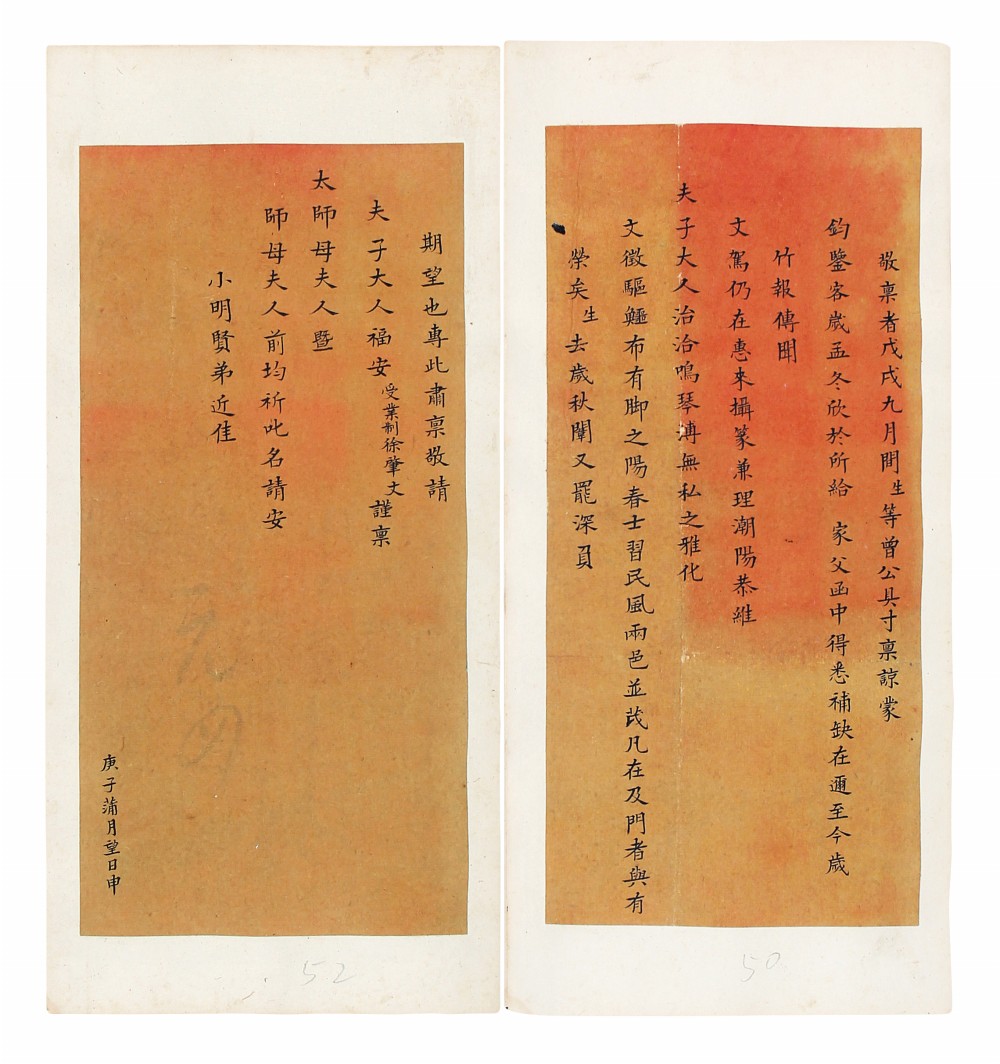 敬稟者戊戌九月間生等曾公具寸稟諒蒙
鈞鑒客歲孟冬欣於所給 家父函中得悉補缺在邇至今歲
竹報傳聞
文駕仍在惠來攝篆兼理潮陽恭維
夫子大人治洽鳴琴溥無私之雅化
文徵驅鱷布有脚之陽春士習民風兩邑並茂凡在及門者與有
榮矣生去歲秋闈又罷深負
50
期望也專此肅稟敬請
夫子大人福安受業制徐肇文謹稟
太師母夫人暨
師母夫人前均祈叱名請安
小明賢弟近佳
庚子蒲月望日申
52